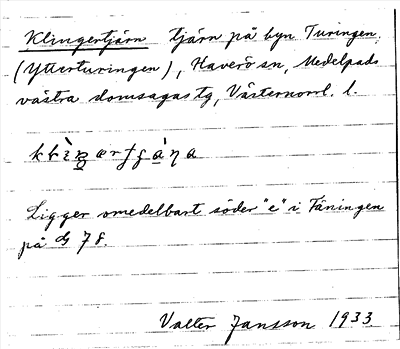 Klingertjärn tjärn på byn Turingen.
(Ytterturingen), Haverö sn, Medelpads
västra domsagas tg, Västernorrl. l.
Ligger omedelbart söder "e" i Täningen
på 78.
Valter Jansson 1933